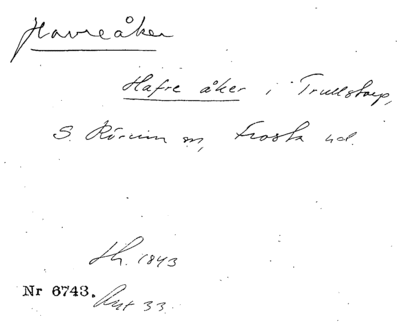 Havreåker
Hafre åker i Trullstorp,
S. Rörum sn, Frosta hd.
Lh. 1843
Nr 6743. Ant 33.